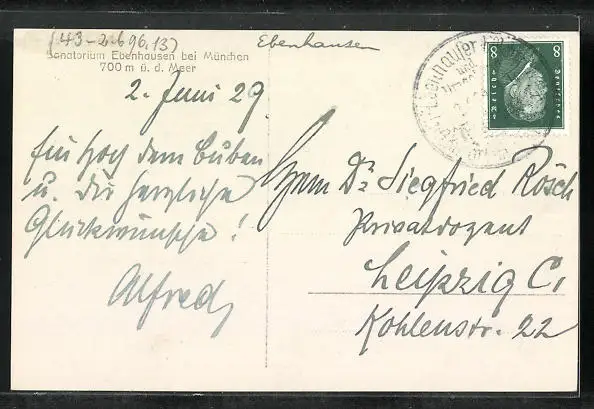 (43-2696.13)
Ebenhausen
Sanatorium Ebenhausen bei München
700 m ü. d. Meer
2. Juni 29.
Ein Hoch dem Buben
u. Dir herzliche
Glückwünsche!
Alfred
Herrn Dr. Siegfried Rösch
Privatdozent
Leipzig C1
Kohlenstr. 22
8 8
Deutsches
Reich
Ebenhausen
und